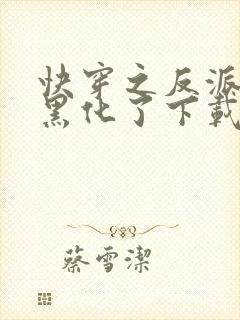 快穿之反派
黑化了下載
蔡雪潔